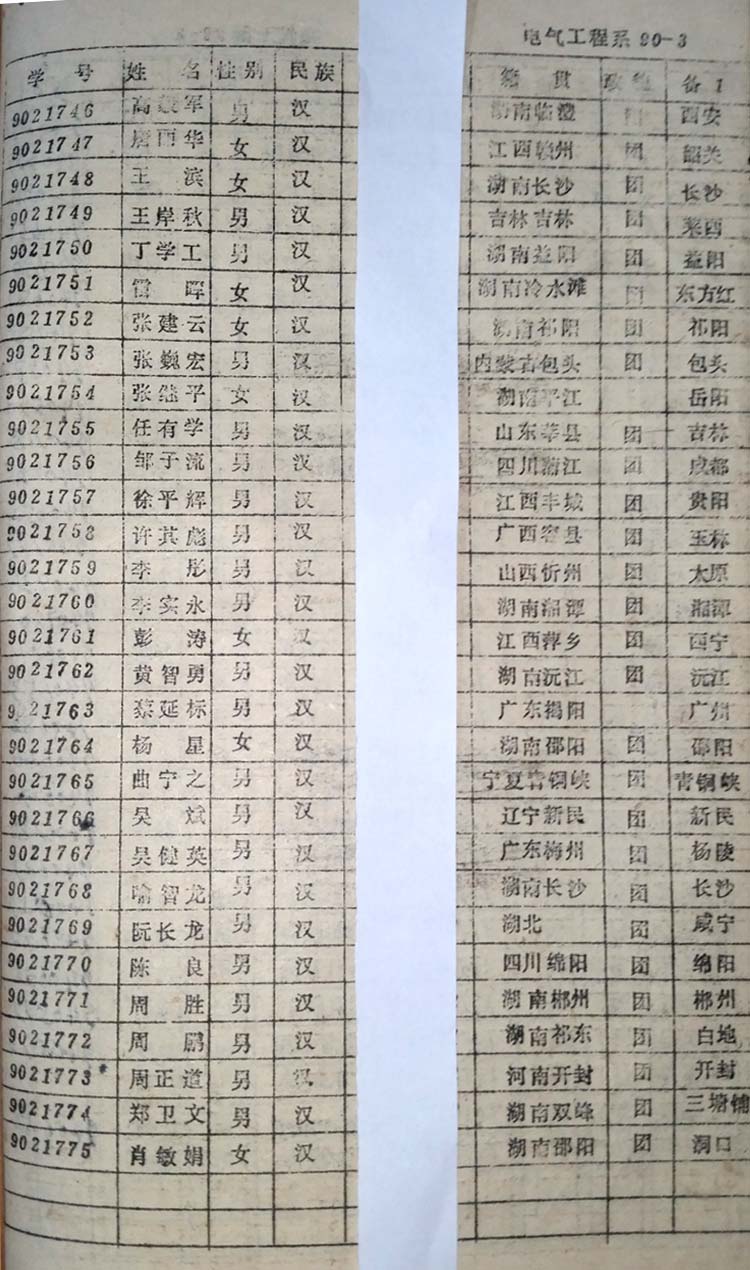 电气工程系 90-3
学号 姓名 性别 民族 籍贯 政 备1
9021746 高 军 男 汉 湖南临澧 团 西安
9021747 唐西华 女 汉 江西赣州 团 韶关
9021748 王滨 女 汉 湖南长沙 团 长沙
9021749 王岸秋 男 汉 吉林吉林 团 莱西
9021750 丁学工 男 汉 湖南益阳 团 益阳
9021751 雷晖 女 汉 湖南冷水滩 团 东方红
9021752 张建云 女 汉 湖南祁阳 团 祁阳
9021753 张巍宏 男 汉 内蒙古包头 团 包头
9021754 张继平 女 汉 湖南平江 岳阳
9021755 任有学 男 汉 山东莘县 团 吉林
9021756 邹子流 男 汉 四川蒲江 团 成都
9021757 徐平辉 男 汉 江西丰城 团 贵阳
9021758 许其彪 男 汉 广西容县 团 玉林
9021759 李彤 男 汉 山西忻州 团 太原
9021760 李实永 男 汉 湖南湘潭 团 湘潭
9021761 彭涛 女 汉 江西萍乡 团 西宁
9021762 黄智勇 男 汉 湖南沅江 团 沅江
9021763 蔡延标 男 汉 广东揭阳 广州
9021764 杨星 女 汉 湖南邵阳 团 邵阳
9021765 曲宁之 男 汉 宁夏青铜峡 团 青铜峡
9021766 吴斌 男 汉 辽宁新民 团 新民
9021767 吴健英 男 汉 广东梅州 团 杨陵
9021768 喻智龙 男 汉 湖南长沙 团 长沙
9021769 阮长龙 男 汉 湖北 团 咸宁
9021770 陈良 男 汉 四川绵阳 团 绵阳
9021771 周胜 男 汉 湖南郴州 团 郴州
9021772 周鹏 男 汉 湖南祁东 团 白地
9021773 周正道 男 汉 河南开封 团 开封
9021774 郑卫文 男 汉 湖南双峰 团 三塘铺
9021775 肖敏娟 女 汉 湖南邵阳 团 洞口